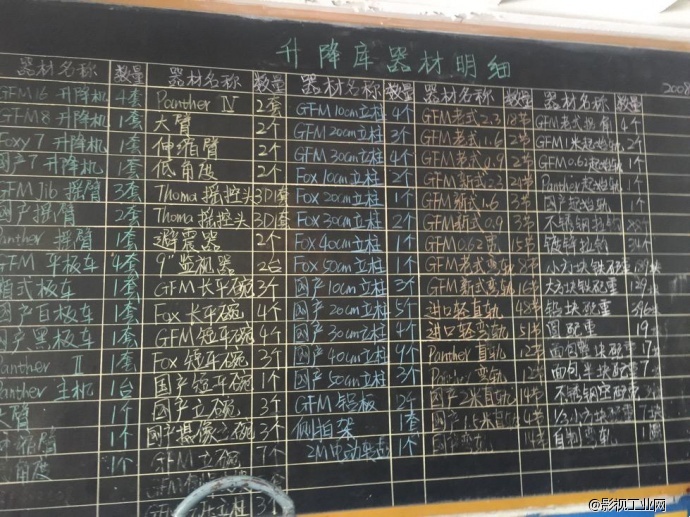 升降库器材明细
2008
器材名称 数量 器材名称 数量 器材名称 数量 器材名称 数量 器材名称 数量
GFM16 升降机 4套 Panther Ⅳ 2套 GFM 10cm立柱 4个 GFM老式2.3 18节 GFM老式拐角 4个
GFM8 升降机 1套 大臂 2个 GFM 20cm立柱 3个 GFM老式1.6 2节 GFM1米起始轨 2个
Foxy7 升降机 1套 伸缩臂 2个 GFM 30cm立柱 4个 GFM老式0.9 2节 GFM0.62起始轨 1个
国产7 升降机 1套 低角度 2个 Fox 10cm立柱 2个 GFM新式2.3 21节 Panther起始轨 1个
GFM Jib 摇臂 3套 Thoma 摇控头 3D1套 Fox 20cm立柱 1个 GFM新式1.6 3节 国产起轨
国产摇臂 2套 Thoma 摇控头 3D1套 Fox 30cm立柱 2个 GFM新式0.9 3节 不锈钢
Panther 摇臂 1套 避震器 2个 Fox 40cm立柱 1个 GFM0.62弯 15节
GFM 平板车 4套 9"监视器 2台 Fox 50cm立柱 1个 GFM老式弯轨 8节
箱式板车 1套 GFM 长平碗 3个 国产 10cm立柱 3个 GFM新式弯轨 16节
国产白板车 1套 Fox 长平碗 4个 国产 20cm立柱 5个 进口轻直轨 48节
国产黑板车 1套 GFM 短平碗 4个 国产 30cm立柱 4个 进口轻弯轨 51节 圆配重 19
Panther Ⅱ 1套 Fox 短平碗 3个 国产 40cm立柱 9个 Panther 直轨 12节 面包整块配重 7
Panther 主机 1台 国产短平碗 1个 国产 50cm立柱 3个 Panther 弯轨 12节 面包半块配重
大臂 1个 国产立碗 3个 GFM 铝板 2个 国产2米直轨 14节 不锈钢
伸缩臂 1个 国产摄像立碗 3个 侧拍架 1套 国产1.6米直轨 4节
低角度 1个 GFM 立碗 7个 1个 国产弯轨 14节 自制弯轨
3个
@影视工业网